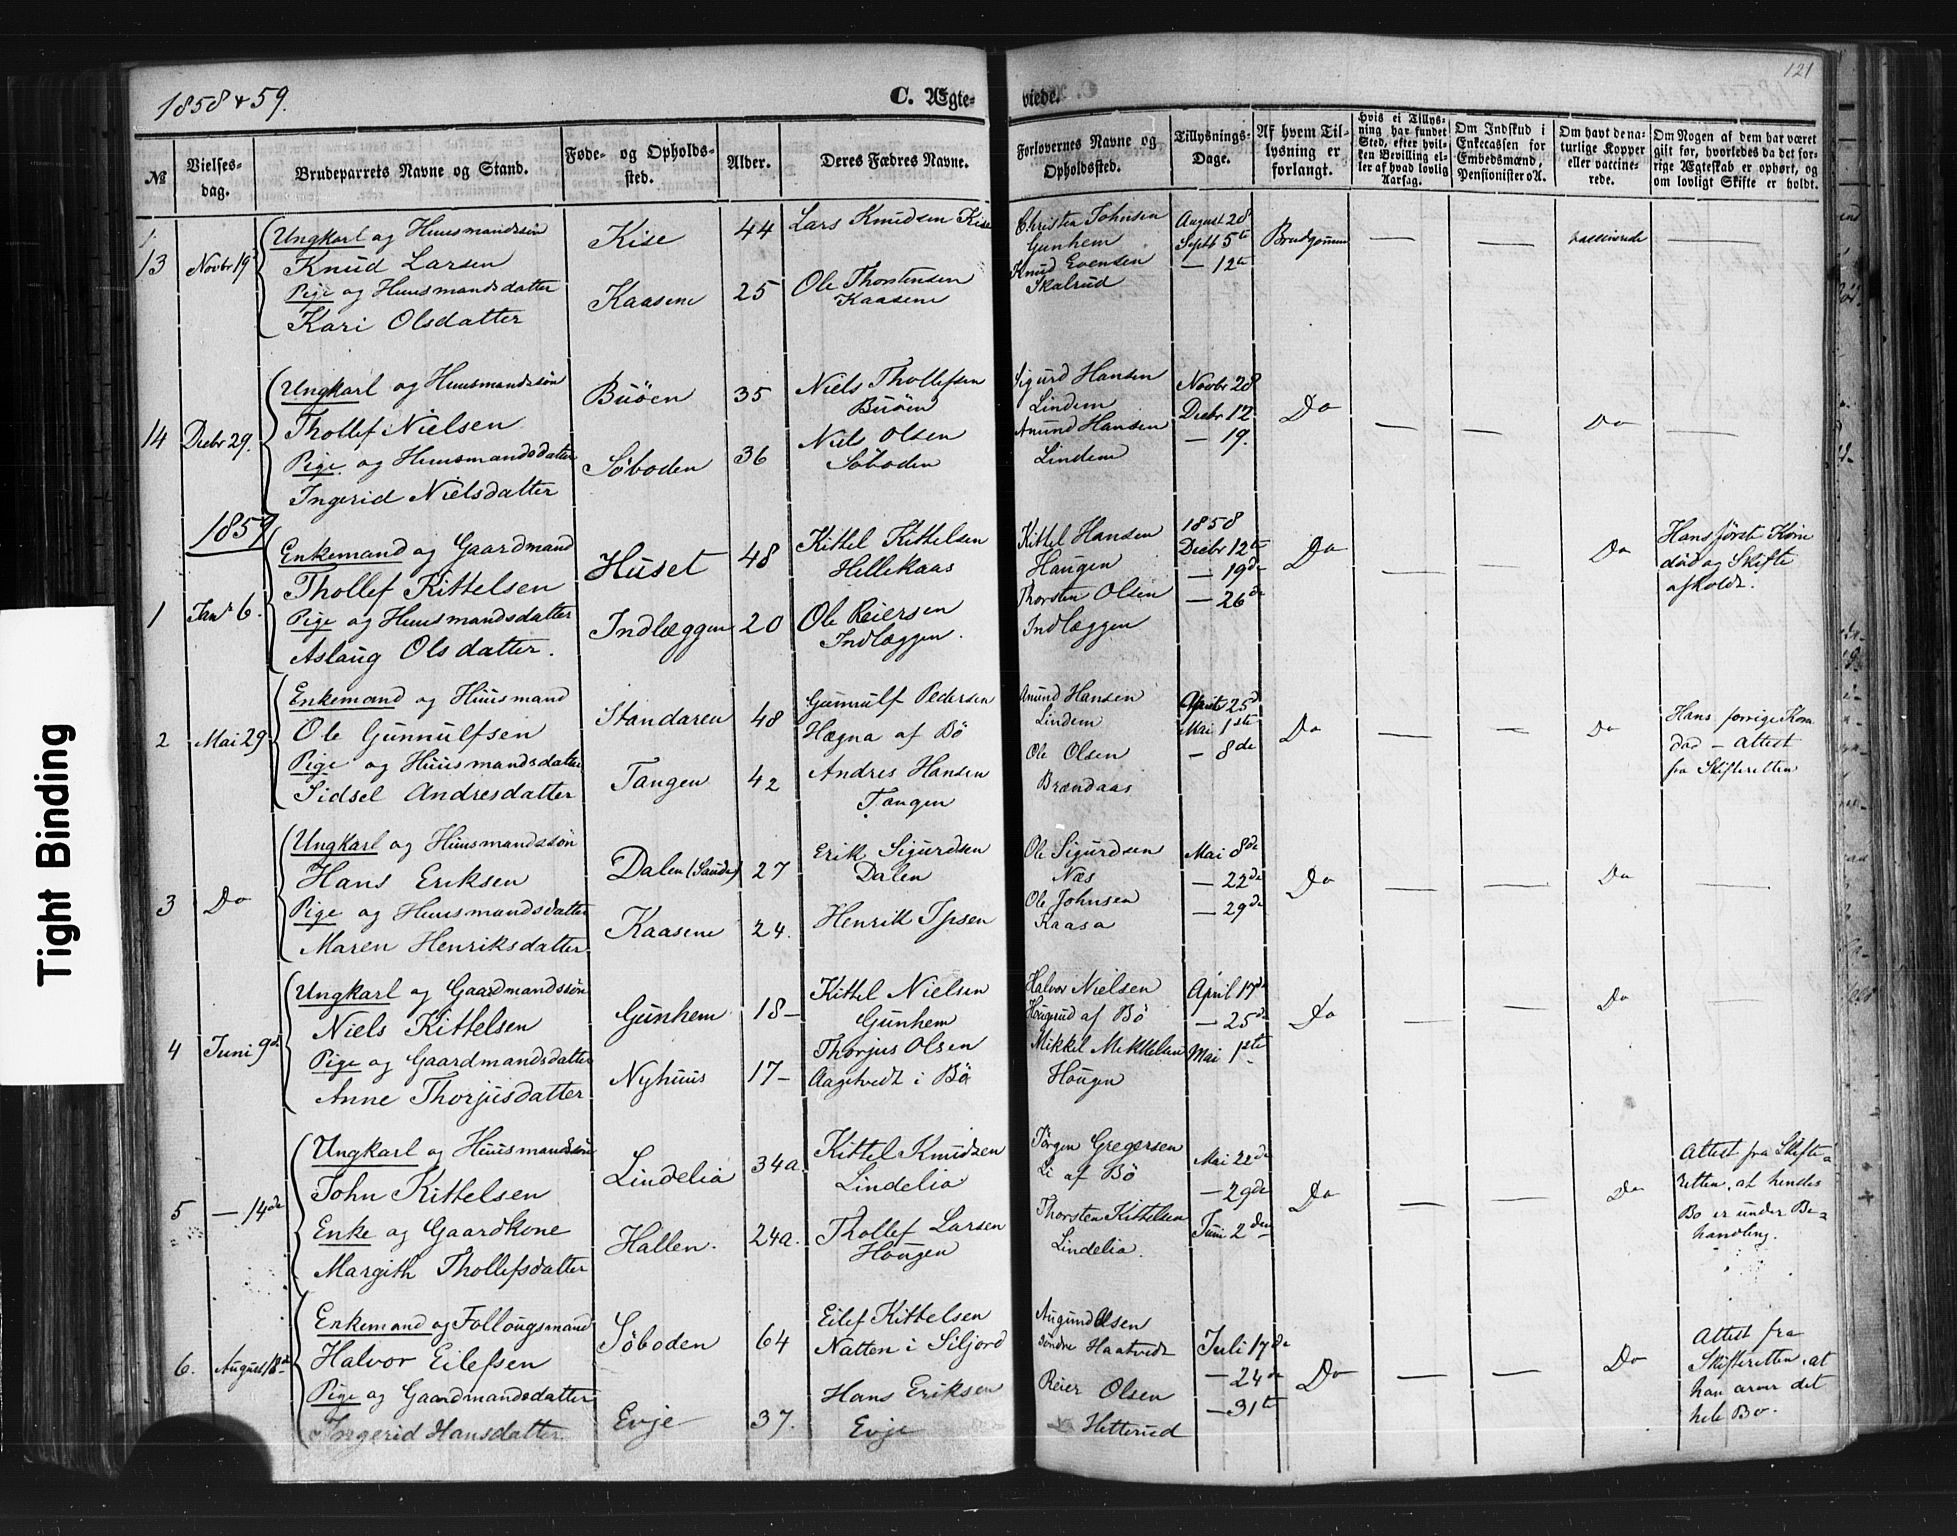 1858 & 59.
C. Ægte-
viede.
121
№
Vielses-
dag.
Brudeparrets Navne og Stand.
Føde- og Opholds-
sted.
Alder.
Deres Fædres Navne.
Forlovernes Navne og
Opholdssted.
Tillysnings-
Dage.
Af hvem Til-
lysning er
forlangt.
Hvis ei Tillys-
ning har fundet
Sted, efter hvil-
ken Bevilling el-
ler af hvad lovlig
Aarsag.
Om Indskud i
Enkecassen for
Embedsmænd,
Pensionister o.A.
Om havt de na-
turlige Kopper
eller vaccine-
rede.
Om Nogen af dem har været
gift før, hvorledes da det for-
rige Ægteskab er ophørt, og
om lovligt Skifte er holdt.
13
Novbr 19
Ungkarl og Huusmandssøn
Knud Larsen
Pige og Huusmandsdatter
Kari Olsdatter
Kise
Kaasene
44
25
Lars Knudsen Kise
Ole Thorstensen
Kaasene
Christen Johnsen
Gunhem
Knud Evensen
Skalrud
August 28
Septb 5te
— 12te
Brudgommen
—
—
vaccinerede
—
14
Decbr 29.
Ungkarl og Huusmandssøn
Thollef Nielsen
Pige og Huusmandsdatter
Ingerid Nielsdatter
Buöen
Söboden
35
36
Niels Thollefsen
Buöen
Niels Olsen
Söboden
Sigurd Hansen
Lindem
Anund Hansen
Lindem
Novbr 28
Decbr 12
— 19.
Do
—
—
Do
—
1859
1
Janr 6.
Enkemand og Gaardmand
Thollef Kittelsen
Pige og Huusmandsdatter
Aslaug Olsdatter.
Huset
Indlæggen
48
20
Kittel Kittelsen
Hellekaas
Ole Reiersen
Indlæggen.
Kittel Hansen
Haugen
Thorsten Olsen
Indlæggen
1858
Decbr 12te
— 19de
— 26de
Do
—
—
Do
Hans først Kone
död og Skifte
afholdt.
2
Mai 29
Enkemand og Huusmand
Ole Gunnulfsen
Pige og Huusmandsdatter
Sidsel Andresdatter
Standaren
Tangen
48
42
Gunnulf Pedersen
Hægna af Bö
Andres Hansen
Tangen
Anund Hansen
Lindem
Ole Olsen
Brændaas
April 25d
Mai 1ste
— 8de
Do
—
—
Do
Hans forrige Kone
död — Attest
fra Skifteretten
3
Do
Ungkarl og Huusmandssøn
Hans Eriksen
Pige og Huusmandsdatter
Maren Henriksdatter
Dalen (Saude)
Kaasene
27
24.
Erik Sigurdsen
Dalen
Henrik Ipsen
Ole Sigurdsen
Næs
Ole Johnsen
Kaasa
Mai 8de
— 22de
— 29de
Do
—
—
Do
—
4
Juni 9d
Ungkarl og Gaardmandssøn
Niels Kittelsen
Pige og Gaardmandsdatter
Anne Thorjusdatter
Gunhem
Nyhuus
18 —
17 —
Kittel Nielsen
Gunhem
Thorjus Olsen
Aagetvedt i Bö
Halvor Nielsen
Hougerud af Bö
Mikkel Mikkelsen
Hougen
April 17de
— 25de
Mai 1ste
Do
—
—
Do
—
5
— 14de
Ungkarl og Huusmandssøn
John Kittelsen
Enke og Gaardkone
Margith Thollefsdatter
Lindelia
Hallen.
34a
24a.
Kittel Knudsen
Lindelia
Thollef Larsen
Hougen
Jörgen Gregersen
Li af Bö
Thorsten Kittelsen
Lindelia.
Mai 22de
— 29de
Juni 2den
Do
—
—
Do
Attest fra Skifte-
retten, at hendes
Bo er under Be-
handling.
6.
August 18de
Enkemand og Follougsmand
Halvor Eilefsen
Pige og Gaardmandsdatter
Ingerid Hansdatter
Söboden
Evje
64
37.
Eilef Kittelsen
Natten i Siljord
Hans Eriksen
Evje
Augund Olsen
söndre Haatvedt
Reier Olsen
Hetterud
Juli 17de
— 24de
— 31te
Do
—
—
Do
Attest fra
Skifteretten, at
han arver det
hele Bo.
Tight Binding